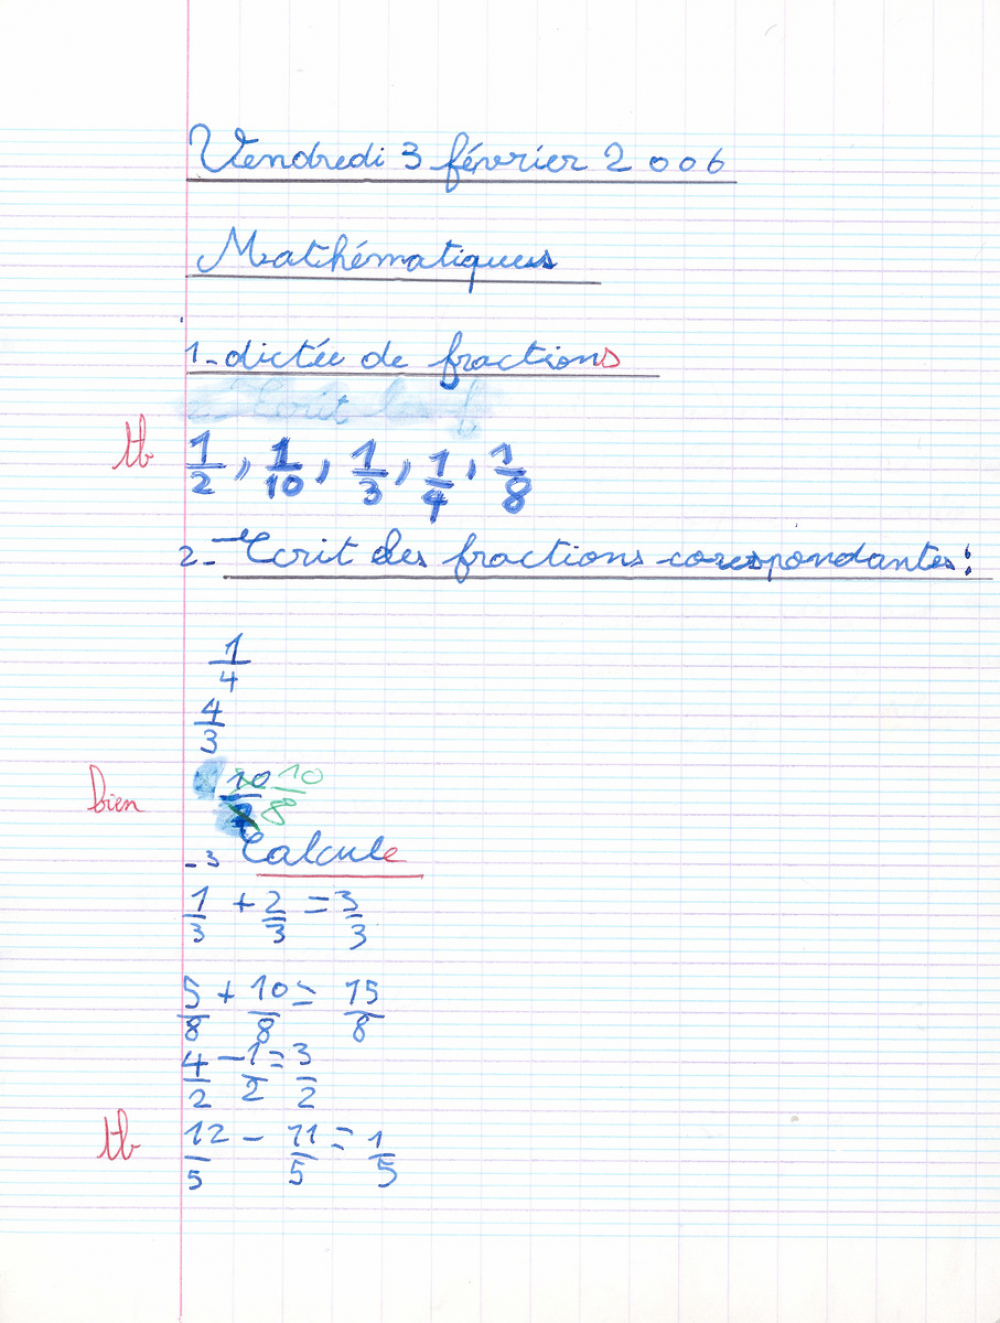 Vendredi 3 février 2006
Mathématiques
1-dictée de fractions
2- Ecrit les f
tb 1/2, 1/10, 1/3, 1/4, 1/8
2- Ecrit des fractions corespondantes:
1/4
4/3
bien 10/ 10/8
-3 Calcule
1/3 + 2/3 = 3/3
5/8 + 10/8 = 15/8
4/2 - 1/2 = 3/2
tb 12/5 - 11/5 = 1/5